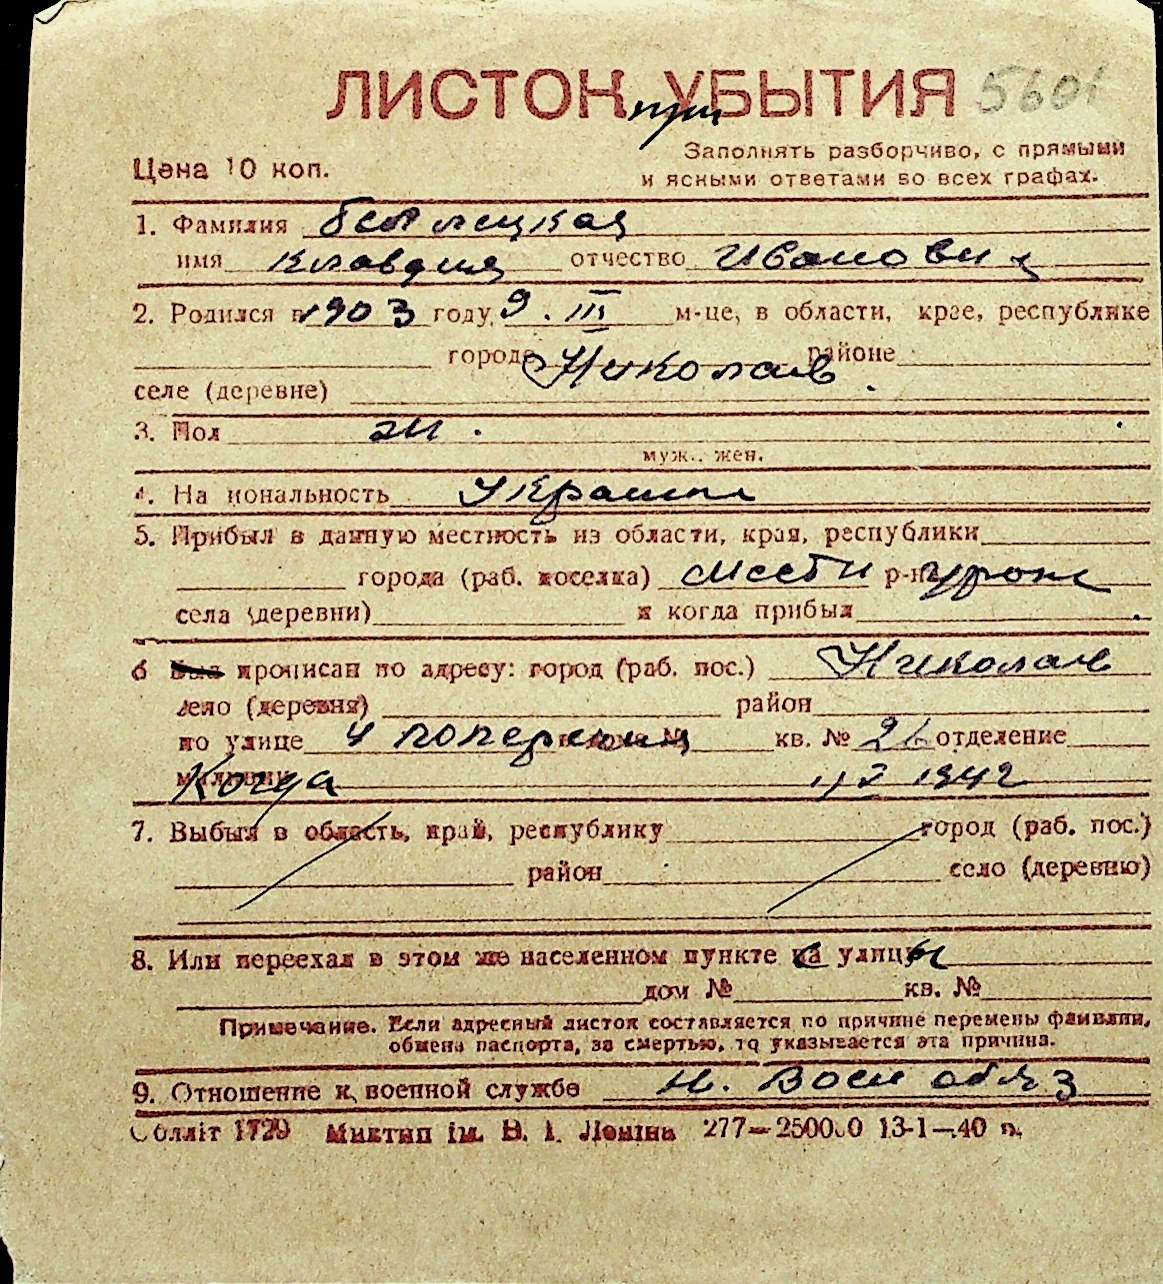 ЛИСТОК при УБЫТИЯ 5601
Цена 10 коп.
Заполнять разборчиво, с прямыми
и ясными ответами во всех графах.
1. Фамилия Белецкая
имя Клавдия отчество Ивановна
2. Родился в 1903 году 9. III м-це, в области, крае, республике
городе Николаев районе
селе (деревне)
3. Пол ж.
муж., жен.
4. Национальность Украин
5. Прибыл в данную местность из области, края, республики
города (раб. поселка) р-на
села (деревни) и когда прибыл
6 Был прописан по адресу: город (раб. пос.) Николаев
село (деревня) район
по улице 4 поперечная кв. № 26 отделение
милиции Когда 1942
7. Выбыл в область, край, республику город (раб. пос.)
район село (деревню)
8. Или переехал в этом же населенном пункте с улицы
дом № кв. №
Примечание. Если адресный листок составляется по причине перемены фамилии,
обмена паспорта, за смертью, то указывается эта причина.
9. Отношение к военной службе н. Воен обяз
Облліт 1729 Миктип ім. В. І. Леніна 277—250000 13-1—40 р.